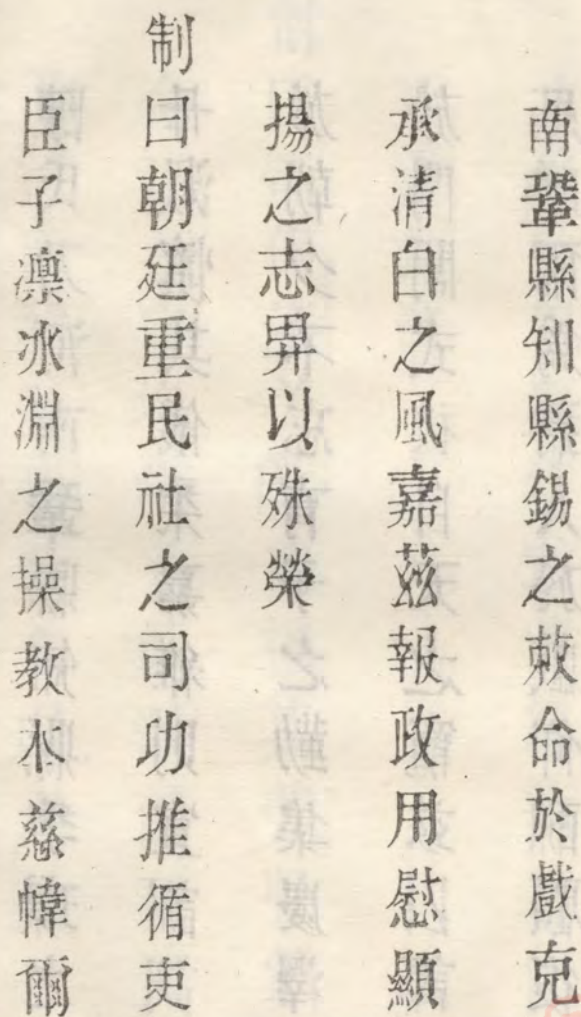 南鞏縣知縣錫之敕命於戲克
承清白之風嘉茲報政用慰顯
揚之志畀以殊榮
制曰朝廷重民社之司功推循吏
臣子凛冰淵之操教本慈幃爾